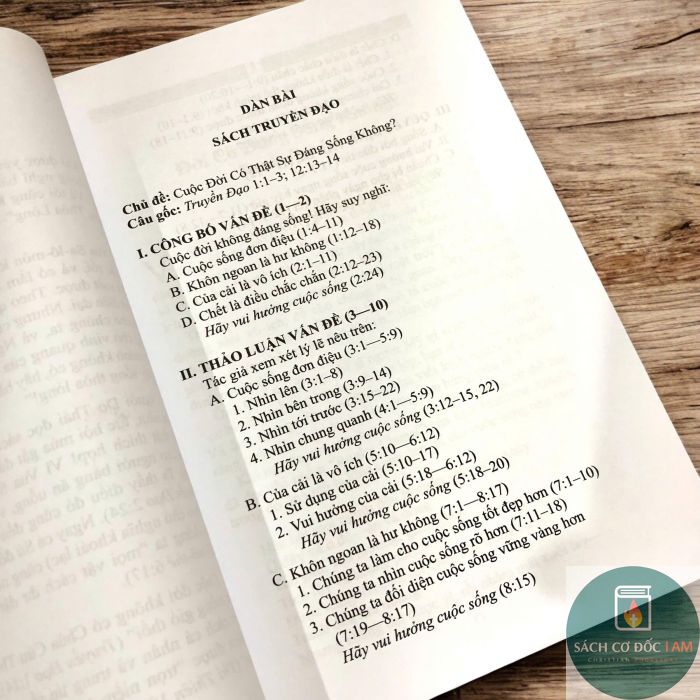 DÀN BÀI
SÁCH TRUYỀN ĐẠO
Chủ đề: Cuộc Đời Có Thật Sự Đáng Sống Không?
Câu gốc: Truyền Đạo 1:1–3; 12:13–14
I. CÔNG BỐ VẤN ĐỀ (1—2)
Cuộc đời không đáng sống! Hãy suy nghĩ:
A. Cuộc sống đơn điệu (1:4–11)
B. Khôn ngoan là hư không (1:12–18)
C. Của cải là vô ích (2:1–11)
D. Chết là điều chắc chắn (2:12–23)
Hãy vui hưởng cuộc sống (2:24)
II. THẢO LUẬN VẤN ĐỀ (3—10)
Tác giả xem xét lý lẽ nêu trên:
A. Cuộc sống đơn điệu (3:1—5:9)
1. Nhìn lên (3:1–8)
2. Nhìn bên trong (3:9–14)
3. Nhìn tới trước (3:15–22)
4. Nhìn chung quanh (4:1—5:9)
Hãy vui hưởng cuộc sống (3:12–15, 22)
B. Của cải là vô ích (5:10—6:12)
1. Sử dụng của cải (5:10–17)
2. Vui hưởng của cải (5:18—6:12)
Hãy vui hưởng cuộc sống (5:18–20)
C. Khôn ngoan là hư không (7:1—8:17)
1. Chúng ta làm cho cuộc sống tốt đẹp hơn (7:1–10)
2. Chúng ta nhìn cuộc sống rõ hơn (7:11–18)
3. Chúng ta đối diện cuộc sống vững vàng hơn
(7:19—8:17)
Hãy vui hưởng cuộc sống (8:15)
SÁCH CƠ ĐỐC I AM